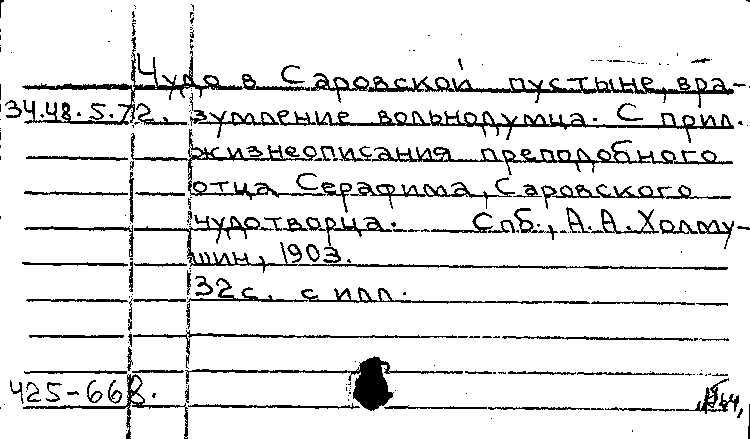 Чудо в Саровской пустыне, вра-
34.48.5.72. зумление вольнодумца. С прил.
жизнеописания преподобного
отца Серафима, Саровского
чудотворца. Спб., А.А.Холму-
шин, 1903.
32с. с илл.
425-668.